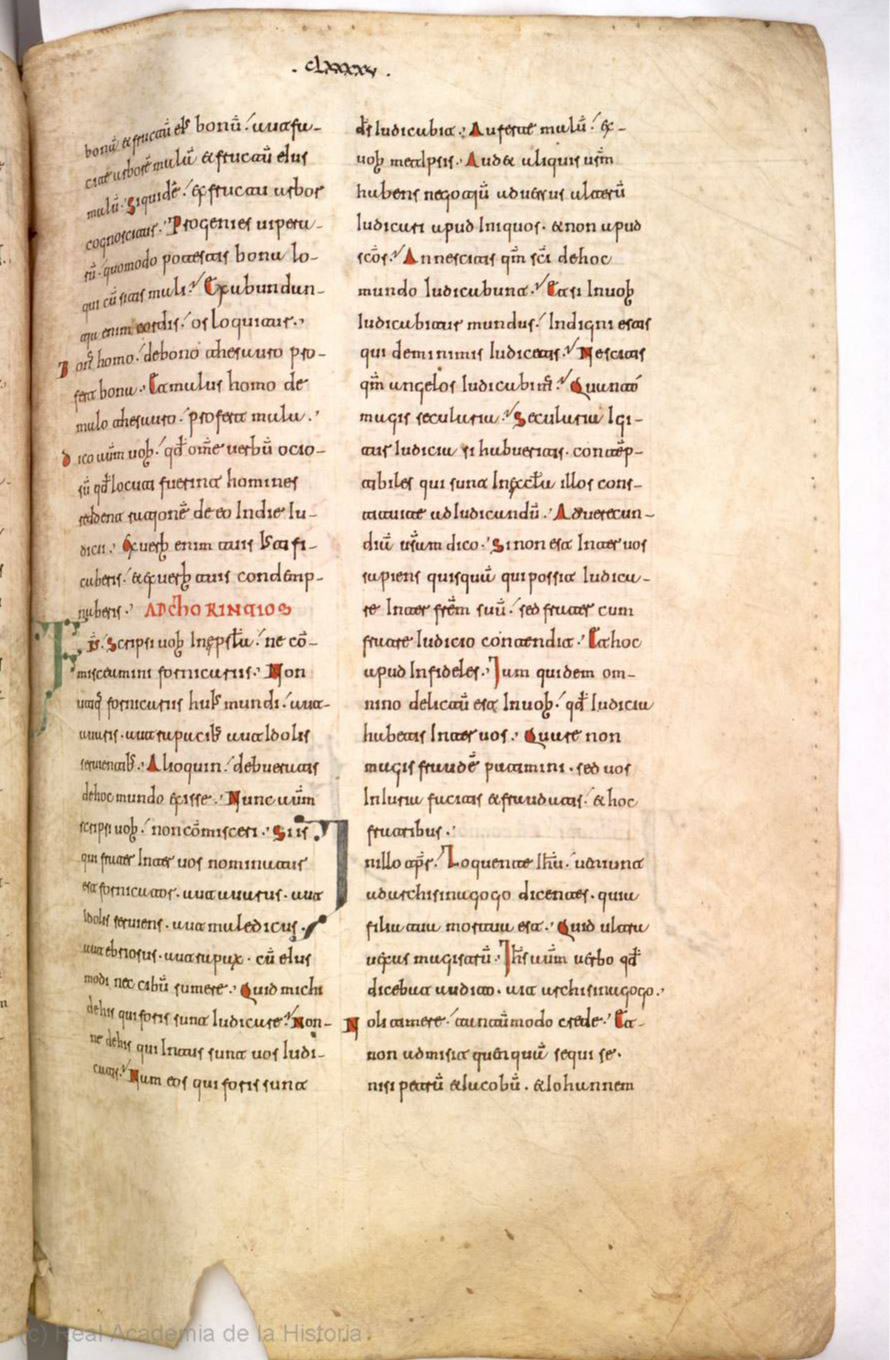 . clxxxxv .
bonū & fructū eiꝰ bonū. aut fa-
cite arborē malū & fructū eius
malū. Siquidē ex fructu arbor
cognoscitur. Progenies uipera-
rū. quomodo potestis bona lo-
qui cū sitis mali. Ex abundan-
tia enim cordis os loquitur.
Bonꝰ homo de bono thesauro pro-
fert bona. Et malus homo de
malo thesauro profert mala.
Dico aūm uob. qd̄ om̄e uerbū ocio-
sū qd̄ locuti fuerint homines
reddent rationē de eo In die Iu-
dicii. Ex uerb enim tuis Iusti fi-
caberis. & ex uerb tuis condemp-
naberis. AD CHORINTIOS
Frs̄. Scripsi uob In epstl̄a ne cō-
misceamini fornicariis. Non
utiq fornicariis huiꝰ mundi. aut
auaris. aut rapacibꝰ aut Idolis
seruientibꝰ. Alioquin debueratis
de hoc mundo exisse. Nunc aūm
scripsi uob. non cōmisceri. Si is
qui frater Inter uos nominatur
est fornicator. aut auarus. aut
Idolis seruiens. aut maledicus.
aut ebriosus. aut rapax. cū eius
modi nec cibū sumere. Quid michi
de his qui foris sunt Iudicare. Non-
ne de his qui Intus sunt uos Iudi-
catis. Nam eos qui foris sunt
ds̄ Iudicabit. Auferte malū ex
uob metipsis. Audet aliquis ur̄m
habens negotiū aduersus alterū
Iudicari apud Iniquos. & non apud
scōs. An nescitis qm̄ sci de hoc
mundo Iudicabunt. Et si In uob
Iudicabitur mundus. Indigni estis
qui de minimis Iudicetis. Nescitis
qm̄ angelos Iudicabimꝰ. Quanto
magis secularia. Secularia Igi-
tur Iudicia si habueritis. contēp-
tibiles qui sunt In eccl̄a illos cons-
tituite ad Iudicandū. Ad uerecun-
diā ur̄am dico. Si non est Inter uos
sapiens quisquā qui possit Iudica-
re Inter fr̄em suū. sed frater cum
fratre Iudicio contendit. Et hoc
apud Infideles. Iam quidem om-
nino delictū est In uob. qd̄ Iudicia
habetis Inter uos. Quare non
magis fraudē patimini. sed uos
Iniuria facitis & fraudatis. & hoc
fratribus.
In illo tp̄r. Loquente Ihū. ad una
ad archisinagogo dicentes. quia
filia tua mortua est. Quid ultra
uexas magistrū. Ihs̄ aūm uerbo qd̄
dicebat audito. ait archisinagogo.
Noli timere. tantū modo crede. Et
non admisit quēquā sequi se.
nisi petrū & Iacobū. & Iohannem
(c) Real Academia de la Historia